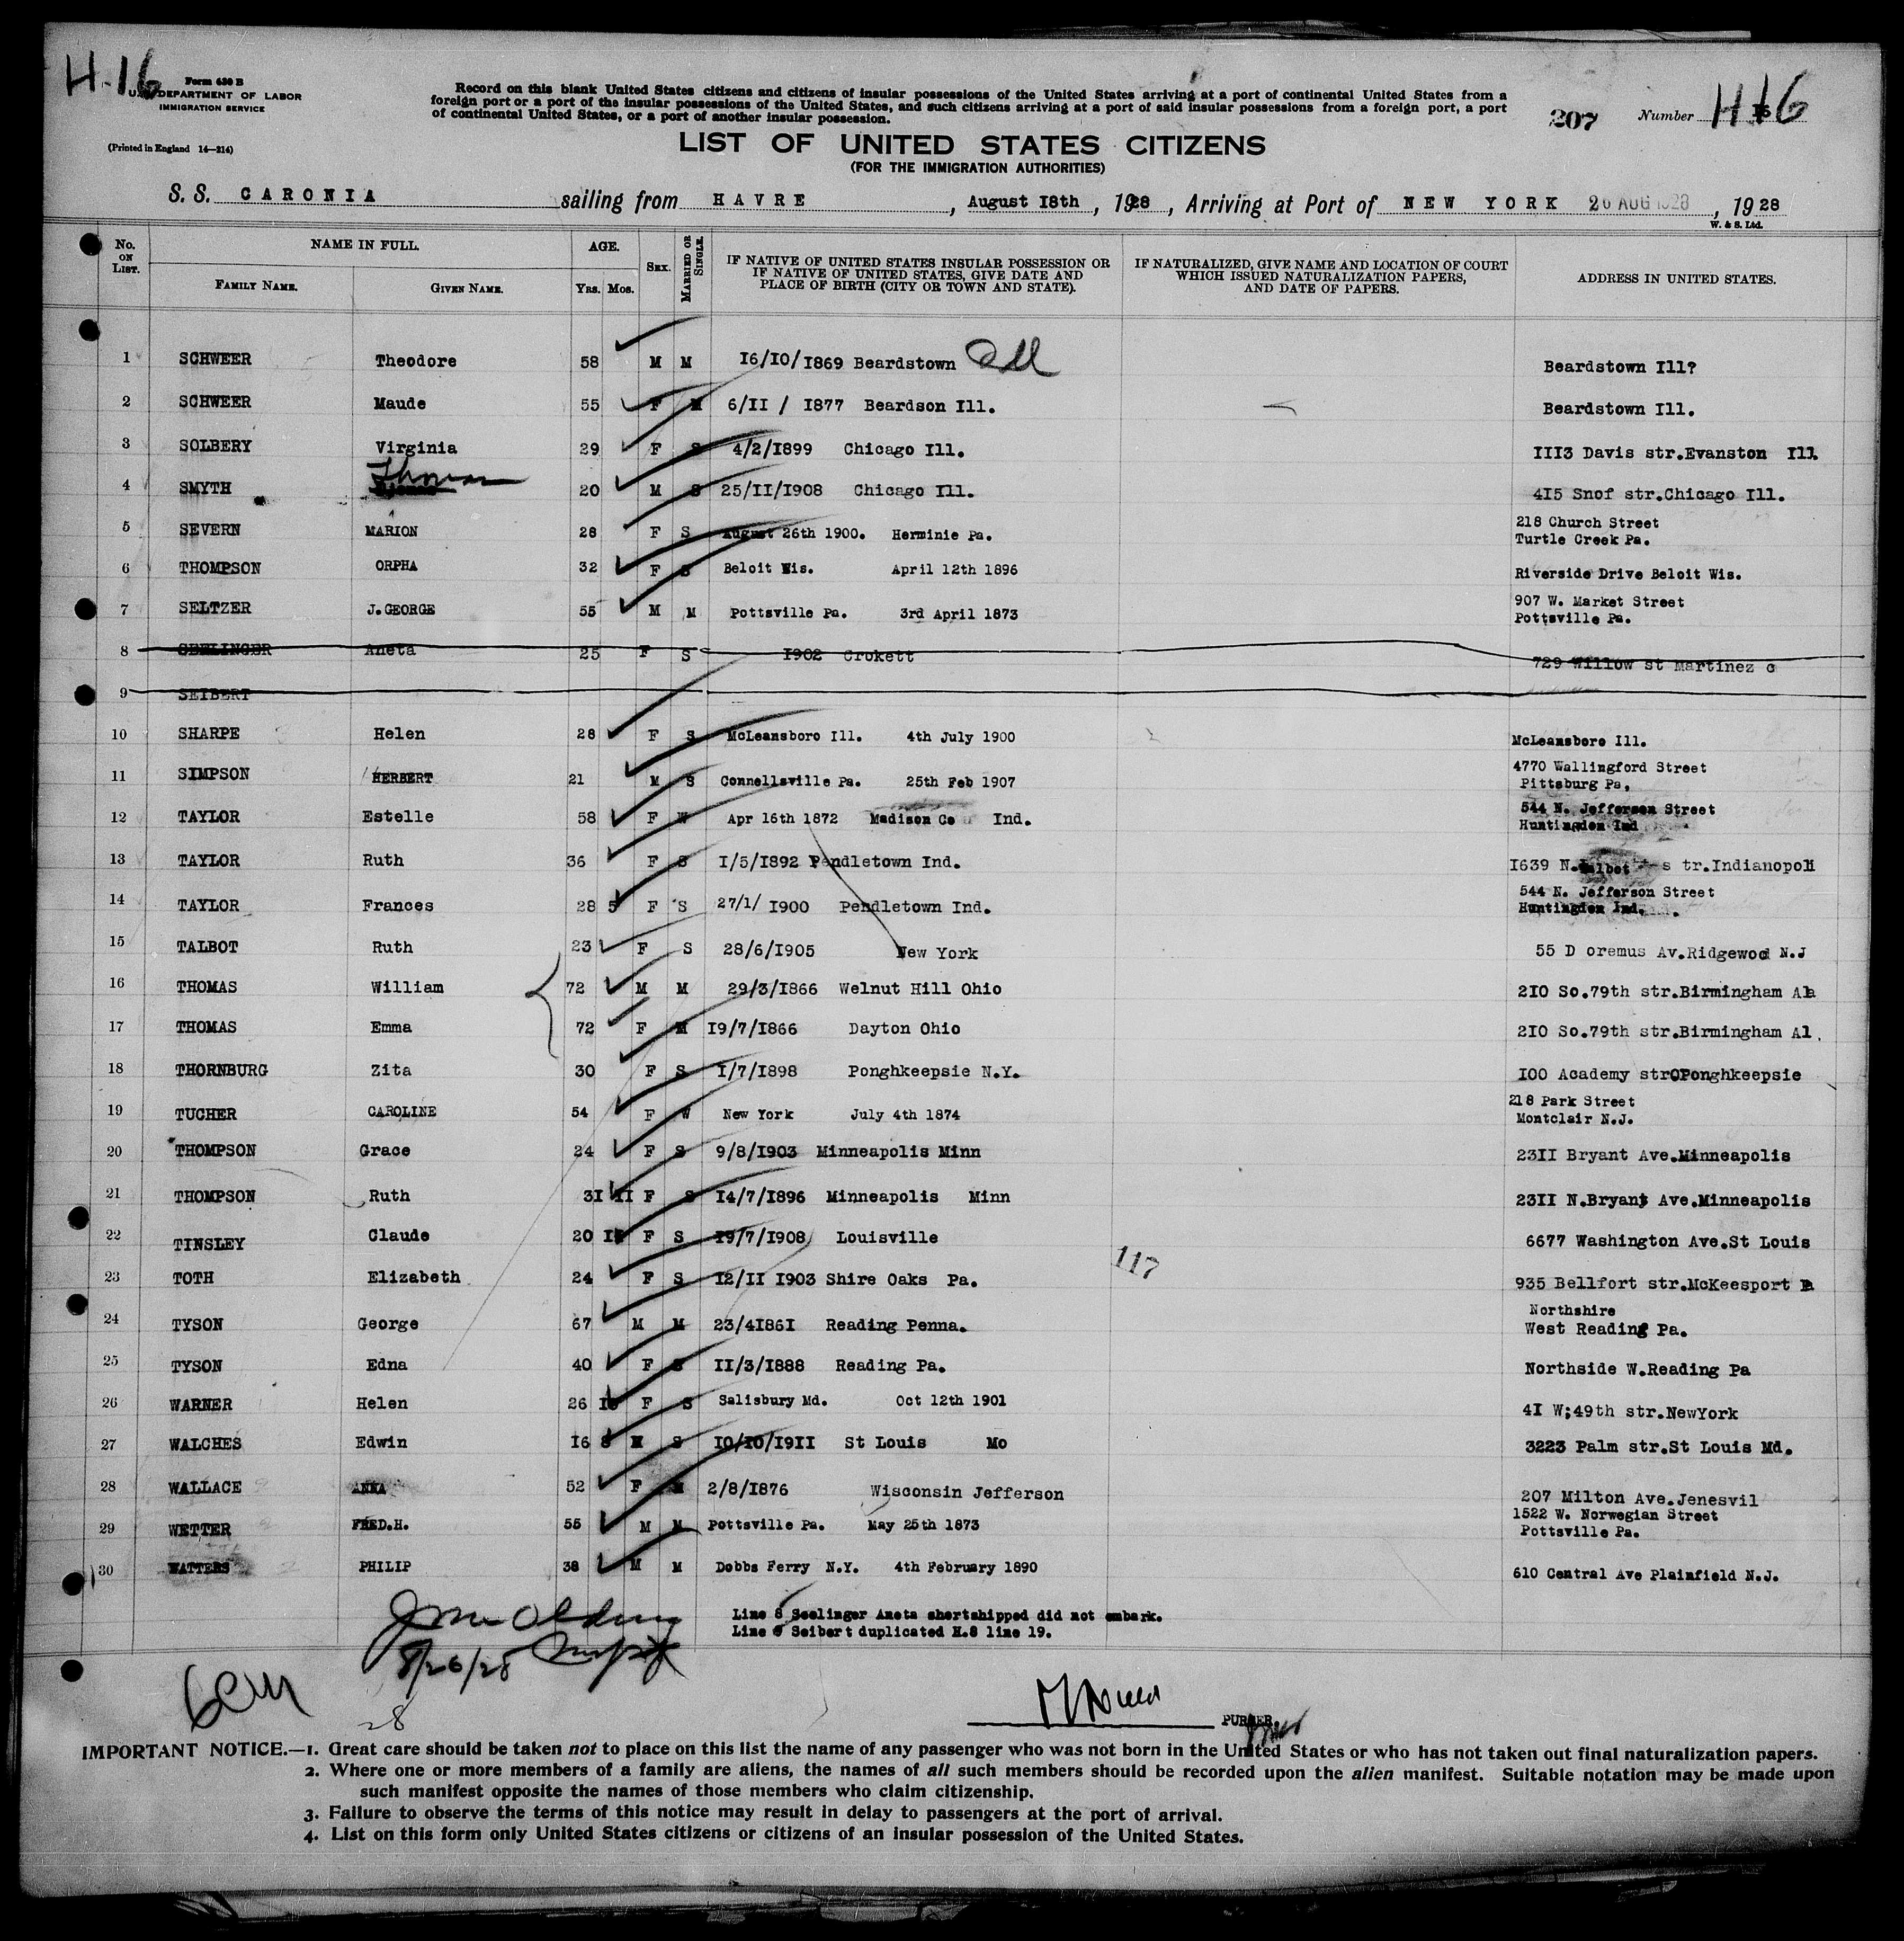 H-16
Form 630 B
U.S. DEPARTMENT OF LABOR
IMMIGRATION SERVICE
(Printed in England 14—214)
Record on this blank United States citizens and citizens of insular possessions of the United States arriving at a port of continental United States from a
foreign port or a port of the insular possessions of the United States, and such citizens arriving at a port of said insular possessions from a foreign port, a port
of continental United States, or a port of another insular possession.
207 Number H 16
LIST OF UNITED STATES CITIZENS
(FOR THE IMMIGRATION AUTHORITIES)
S. S. CARONIA sailing from HAVRE, August 18th, 1928, Arriving at Port of NEW YORK 26 AUG 1928, 1928
W. & S. Ltd.
No. ON LIST. NAME IN FULL. FAMILY NAME. GIVEN NAME. AGE. Yrs. Mos. SEX. MARRIED OR SINGLE. IF NATIVE OF UNITED STATES INSULAR POSSESSION OR IF NATIVE OF UNITED STATES, GIVE DATE AND PLACE OF BIRTH (CITY OR TOWN AND STATE). IF NATURALIZED, GIVE NAME AND LOCATION OF COURT WHICH ISSUED NATURALIZATION PAPERS, AND DATE OF PAPERS. ADDRESS IN UNITED STATES.
1 SCHWEER Theodore 58 M M 16/10/1869 Beardstown Ill Beardstown Ill?
2 SCHWEER Maude 55 F M 6/II / 1877 Beardson Ill. Beardstown Ill.
3 SOLBERY Virginia 29 F S 4/2/1899 Chicago Ill. III3 Davis str.Evanston Ill.
4 SMYTH Thomas 20 M S 25/II/1908 Chicago Ill. 415 Snof str.Chicago Ill.
5 SEVERN MARION 28 F S August 26th 1900. Herminie Pa. 218 Church Street Turtle Creek Pa.
6 THOMPSON ORPHA 32 F S Beloit Wis. April 12th 1896 Riverside Drive Beloit Wis.
7 SELTZER J. GEORGE 55 M M Pottsville Pa. 3rd April 1873 907 W. Market Street Pottsville Pa.
8 SEELINGER Aneta 25 F S 1902 Crokett 729 Willow st Martinez C
9 SEIBERT
10 SHARPE Helen 28 F S McLeansboro Ill. 4th July 1900 McLeansboro Ill.
11 SIMPSON HERBERT 21 M S Connellsville Pa. 25th Feb 1907 4770 Wallingford Street Pittsburg Pa.
12 TAYLOR Estelle 58 F W Apr 16th 1872 Madison Co Ind. 544 N. Jefferson Street Huntingdon Ind
13 TAYLOR Ruth 36 F S I/5/1892 Pendletown Ind. 1639 N.Talbot s tr.Indianopoli
14 TAYLOR Frances 28 5 F S 27/1/ 1900 Pendletown Ind. 544 N. Jefferson Street Huntingdon Ind.
15 TALBOT Ruth 23 F S 28/6/1905 New York 55 D oremus Av.Ridgewood N.J
16 THOMAS William 72 M M 29/3/1866 Welnut Hill Ohio 210 So.79th str.Birmingham Ala
17 THOMAS Emma 72 F M 19/7/1866 Dayton Ohio 210 So.79th str.Birmingham Al.
18 THORNBURG Zita 30 F S I/7/1898 Ponghkeepsie N.Y. 100 Academy str Ponghkeepsie
19 TUCHER CAROLINE 54 F W New York July 4th 1874 218 Park Street Montclair N.J.
20 THOMPSON Grace 24 F S 9/8/1903 Minneapolis Minn 23II Bryant Ave.Minneapolis
21 THOMPSON Ruth 31 II F S 14/7/1896 Minneapolis Minn 23II N.Bryant Ave.Minneapolis
22 TINSLEY Claude 20 F S 19/7/1908 Louisville 6677 Washington Ave.St Louis
23 TOTH Elizabeth 24 F S 12/II 1903 Shire Oaks Pa. 935 Bellfort str.McKeesport Pa
117
24 TYSON George 67 M M 23/41861 Reading Penna. Northshire West Reading Pa.
25 TYSON Edna 40 F S II/3/1888 Reading Pa. Northside W.Reading Pa
26 WARNER Helen 26 10 F S Salisbury Md. Oct 12th 1901 41 W;49th str.NewYork
27 WALCHES Edwin 16 8 M S 10/10/1911 St Louis Mo 3223 Palm str.St Louis Md.
28 WALLACE ANNA 52 F M 2/8/1876 Wisconsin Jefferson 207 Milton Ave.Jenesvil
29 WETTER FRED.H. 55 M M Pottsville Pa. May 25th 1873 1522 W. Norwegian Street Pottsville Pa.
30 WATTERS PHILIP 38 M M Dobbs Ferry N.Y. 4th February 1890 610 Central Ave Plainfield N.J.
Line 8 Seelinger Aneta shortshipped did not embark.
Line 9 Seibert duplicated H.8 line 19.
8/26/28
28
PURSER.
IMPORTANT NOTICE.—1. Great care should be taken not to place on this list the name of any passenger who was not born in the United States or who has not taken out final naturalization papers.
2. Where one or more members of a family are aliens, the names of all such members should be recorded upon the alien manifest. Suitable notation may be made upon
such manifest opposite the names of those members who claim citizenship.
3. Failure to observe the terms of this notice may result in delay to passengers at the port of arrival.
4. List on this form only United States citizens or citizens of an insular possession of the United States.